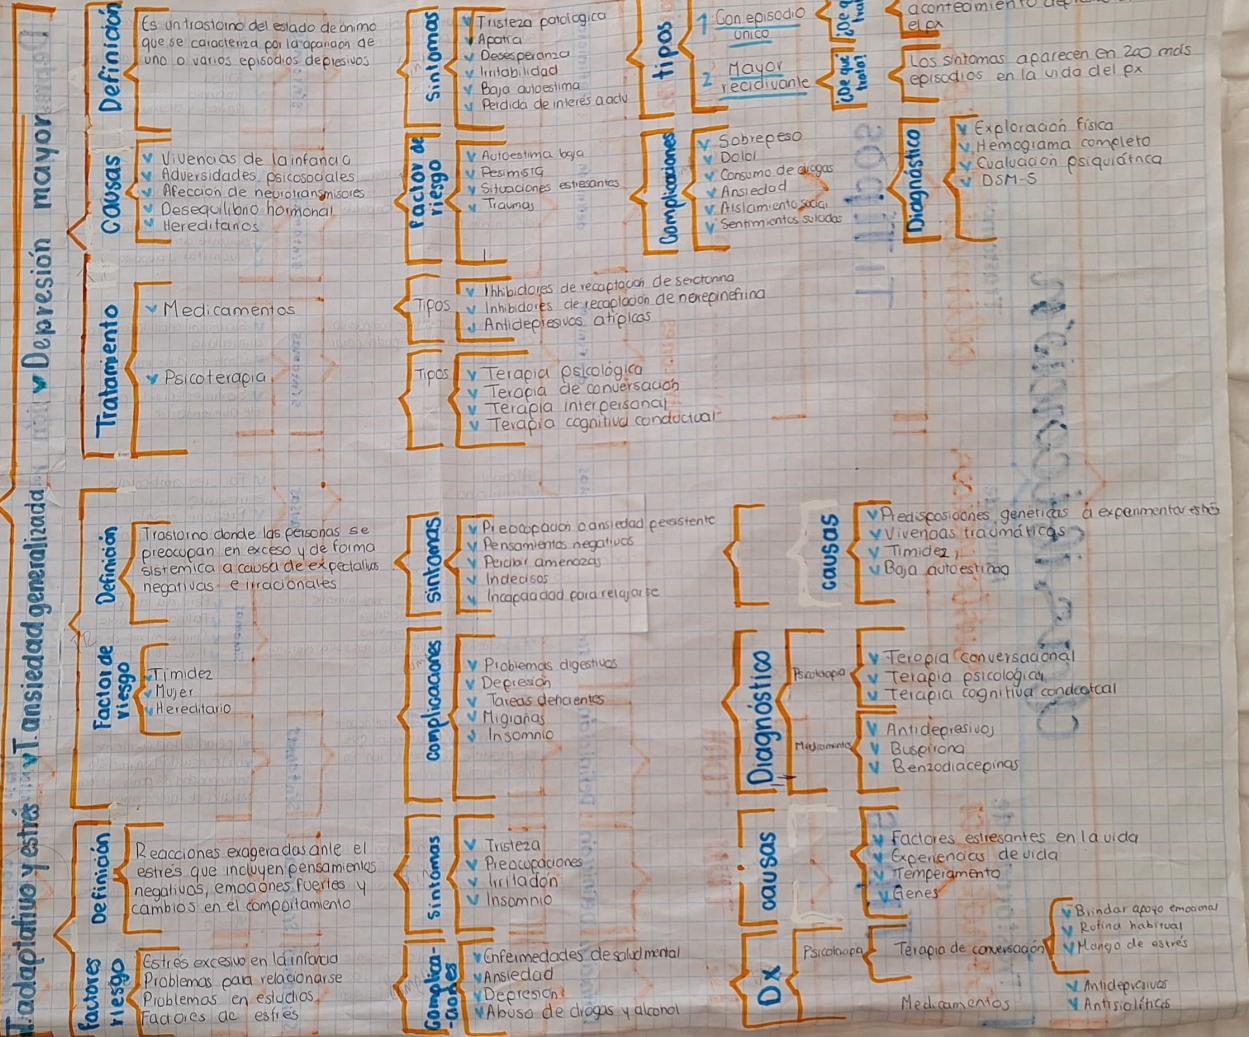 Depresión mayor
Definición
Es un trastorno del estado de ánimo
que se caracteriza por la aparición de
uno o varios episodios depresivos
Síntomas
Tristeza patologica
Apatía
Desesperanza
Irritabilidad
Baja autoestima
Perdida de interés a activ
tipos
1 Con episodio
único
2 Mayor
recidivante
¿De qué
trata?
el px
Los síntomas aparecen en 2 oo más
episodios en la vida del px
Causas
Vivencias de la infancia
Adversidades psicosociales
Afección de neurotransmisores
Desequilibrio hormonal
Hereditarios
Factor de
riesgo
Autoestima baja
Pesimista
Situaciones estresantes
Traumas
Complicaciones
Sobrepeso
Dolor
Consumo de drogas
Ansiedad
Aislamiento social
Sentimientos suicidas
Diagnóstico
Exploración física
Hemograma completo
Evaluación psiquiátrica
DSM-5
Tratamiento
Medicamentos
Tipos
Inhibidores de recaptación de serotonina
Inhibidores de recaptación de norepinefrina
Antidepresivos atípicos
Psicoterapia
Tipos
Terapia psicológica
Terapia de conversación
Terapia interpersonal
Terapia cognitiva conductual
T ansiedad generalizada
Definición
Trastorno donde las personas se
preocupan en exceso y de forma
sistemica a causa de expectativas
negativas e irracionales
Síntomas
Preocupación o ansiedad persistente
Pensamientos negativos
Percibir amenazas
Indecisos
Incapacidad para relajarse
causas
Predisposiciones genéticas a experimentar estrés
Vivencias traumáticas
Timidez
Baja autoestima
Factor de
riesgo
Timidez
Mujer
Hereditario
Complicaciones
Problemas digestivos
Depresión
Tareas deficientes
Migrañas
Insomnio
Diagnóstico
Psicoterapia
Terapia conversacional
Terapia psicológica
Terapia cognitiva conductal
Medicamentos
Antidepresivos
Buspirona
Benzodiacepinas
T adaptativo y estrés
Definición
Reacciones exageradas ante el
estrés que incluyen pensamientos
negativos, emociones fuertes y
cambios en el comportamiento
Síntomas
Tristeza
Preocupaciones
Irritación
Insomnio
causas
Factores estresantes en la vida
Experiencias de vida
Temperamento
Genes
Factores
riesgo
Estrés excesivo en la infancia
Problemas para relacionarse
Problemas en estudios
Factores de estrés
Complica-
-ciones
Enfermedades de salud mental
Ansiedad
Depresión
Abuso de drogas y alcohol
Dx
Psicoterapia
Terapia de conversación
Brindar apoyo emocional
Rutina habitual
Manejo de estrés
Medicamentos
Antidepresivos
Ansiolíticos